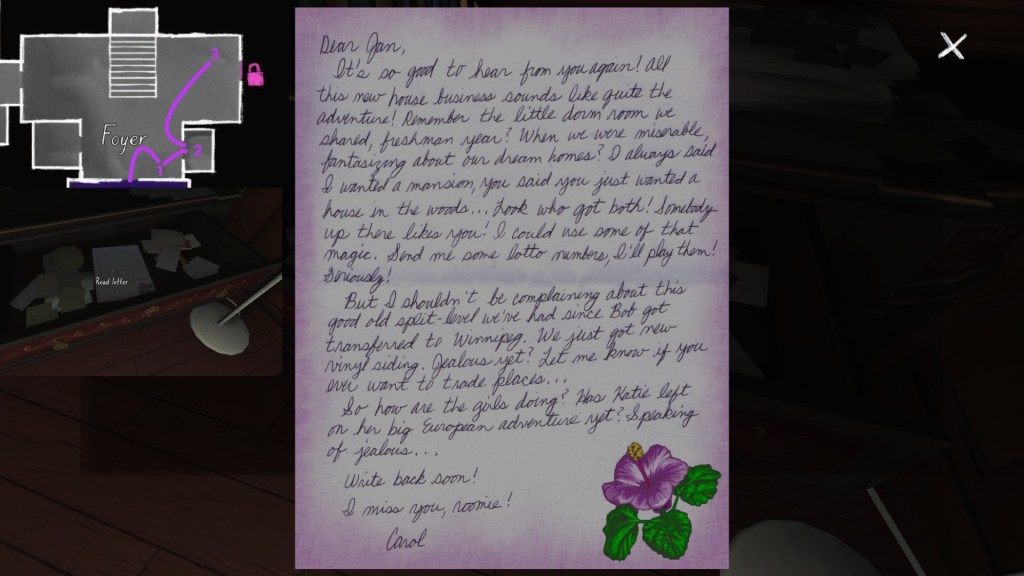 3
Foyer
2
1
Read letter
Dear Jan,
It's so good to hear from you again! All
this new house business sounds like quite the
adventure! Remember the little dorm room we
shared, freshman year? When we were miserable,
fantasizing about our dream homes? I always said
I wanted a mansion, you said you just wanted a
house in the woods... Look who got both! Somebody
up there likes you! I could use some of that
magic. Send me some lotto numbers, I'll play them!
Seriously!
But I shouldn't be complaining about this
good old split-level we've had since Bob got
transferred to Winnipeg. We just got new
vinyl siding. Jealous yet? Let me know if you
ever want to trade places...
So how are the girls doing? Has Katie left
on her big European adventure yet? Speaking
of jealous...
Write back soon!
I miss you, roomie!
Carol